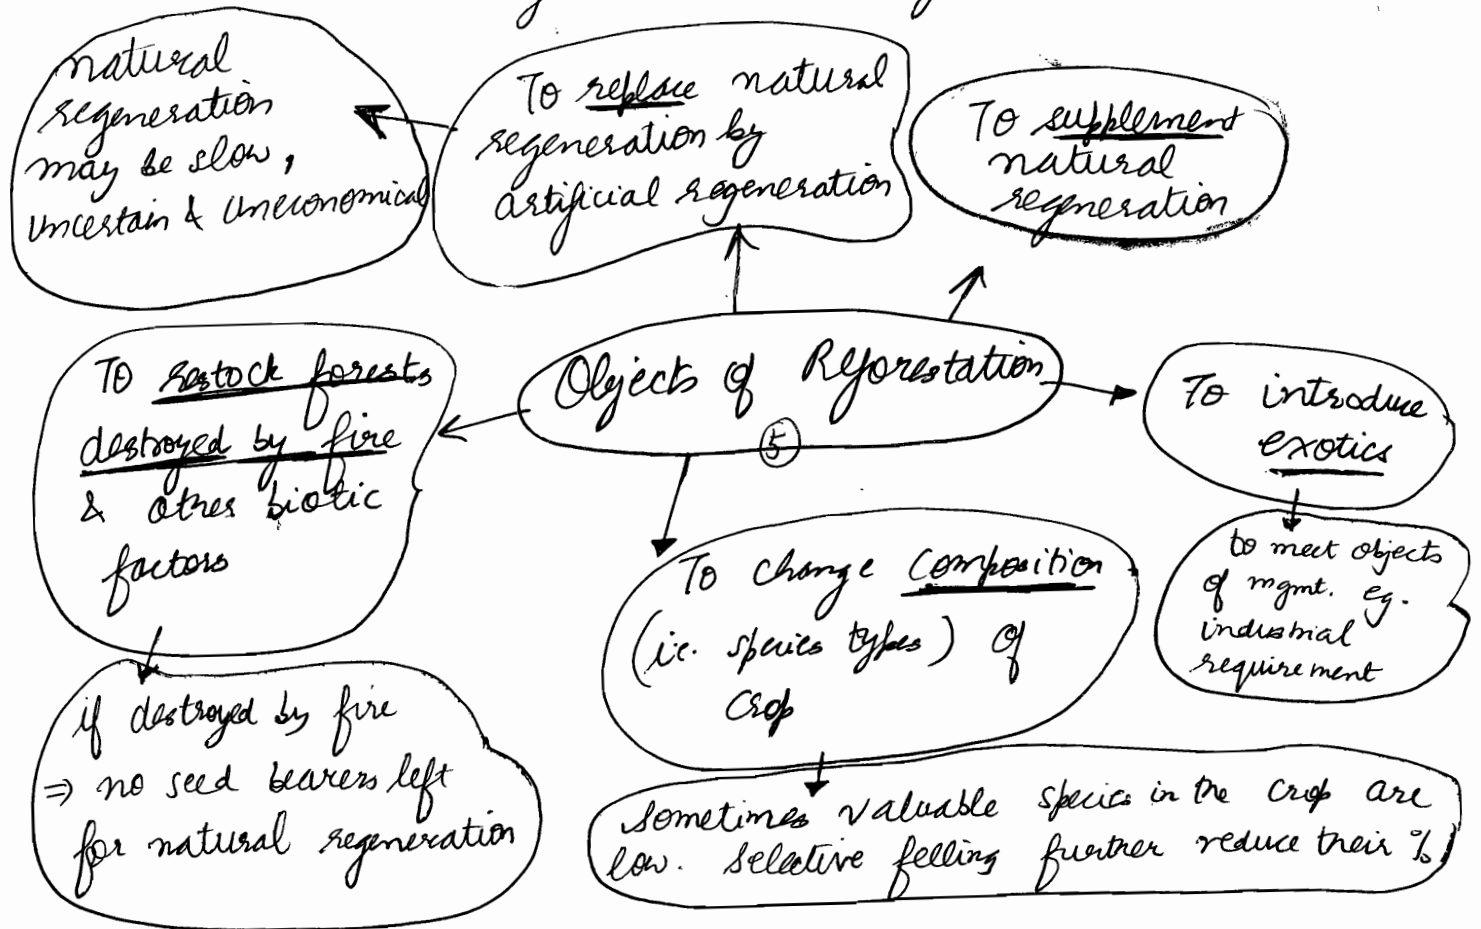 natural
regeneration
may be slow,
uncertain & uneconomical
To replace natural
regeneration by
artificial regeneration
To supplement
natural
regeneration
Objects of Reforestation
5
To restock forests
destroyed by fire
& other biotic
factors
To introduce
exotics
to meet objects
of mgmt. eg.
industrial
requirement
To change composition
(i.e. species types) of
crop
if destroyed by fire
⇒ no seed bearers left
for natural regeneration
sometimes valuable species in the crop are
low. selective felling further reduce their %